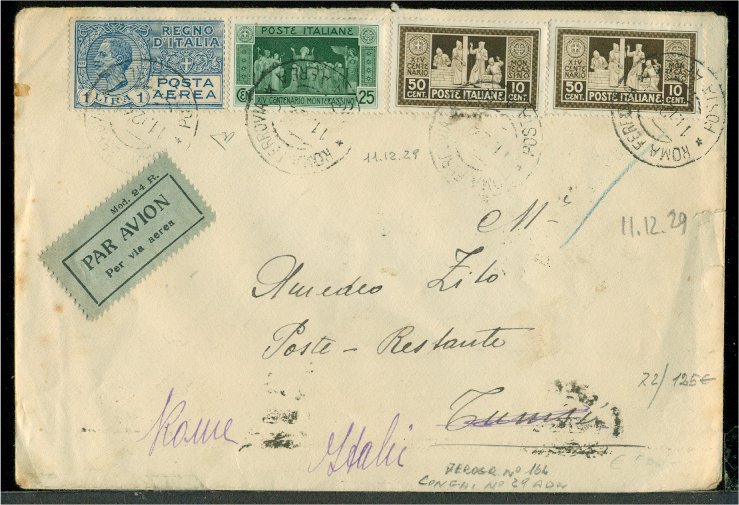 REGNO
D'ITALIA
POSTA
AEREA
1 LIRA 1
POSTE ITALIANE
XIV CENTENARIO MONTECASSINO
25
XIV
CENTE
NARIO
MON
CASSINO
50
CENT.
POSTE ITALIANE
10
CENT.
XIV
CENTE
NARIO
50
CENT.
POSTE ITALIANE
10
CENT.
ROMA FERROVIA
POSTA
ROMA FERR
POSTA
11.12.29
Mod. 24 R.
PAR AVION
Per via aerea
Mr
11.12.29
Amedeo Zito
Poste-Restante
72/125€
Tunisi
Rome
Italie
AEROGR. Nº 164
Nº 29